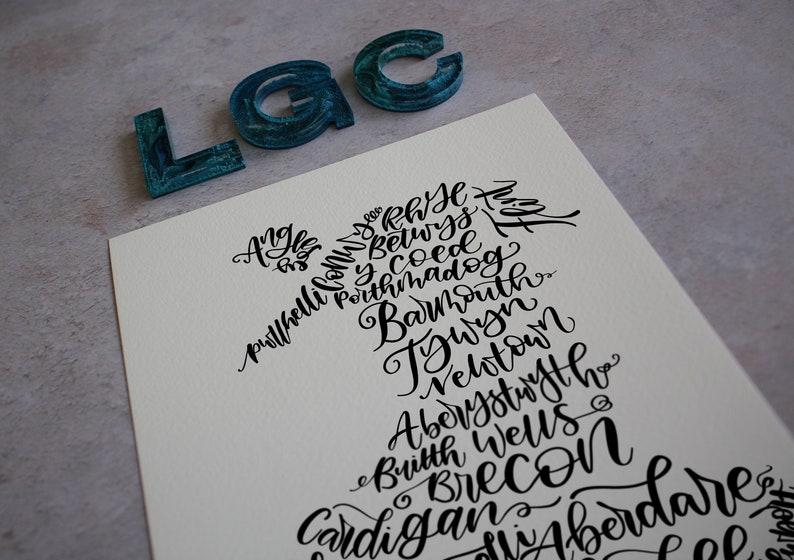 LGC
Anglesey
Conwy
Rhyl
Flint
Betwys
y coed
pwllhelli
Porthmadog
Barmouth
Tywyn
newtown
Aberystwyth
Builth Wells
Brecon
Cardigan
Aberdare